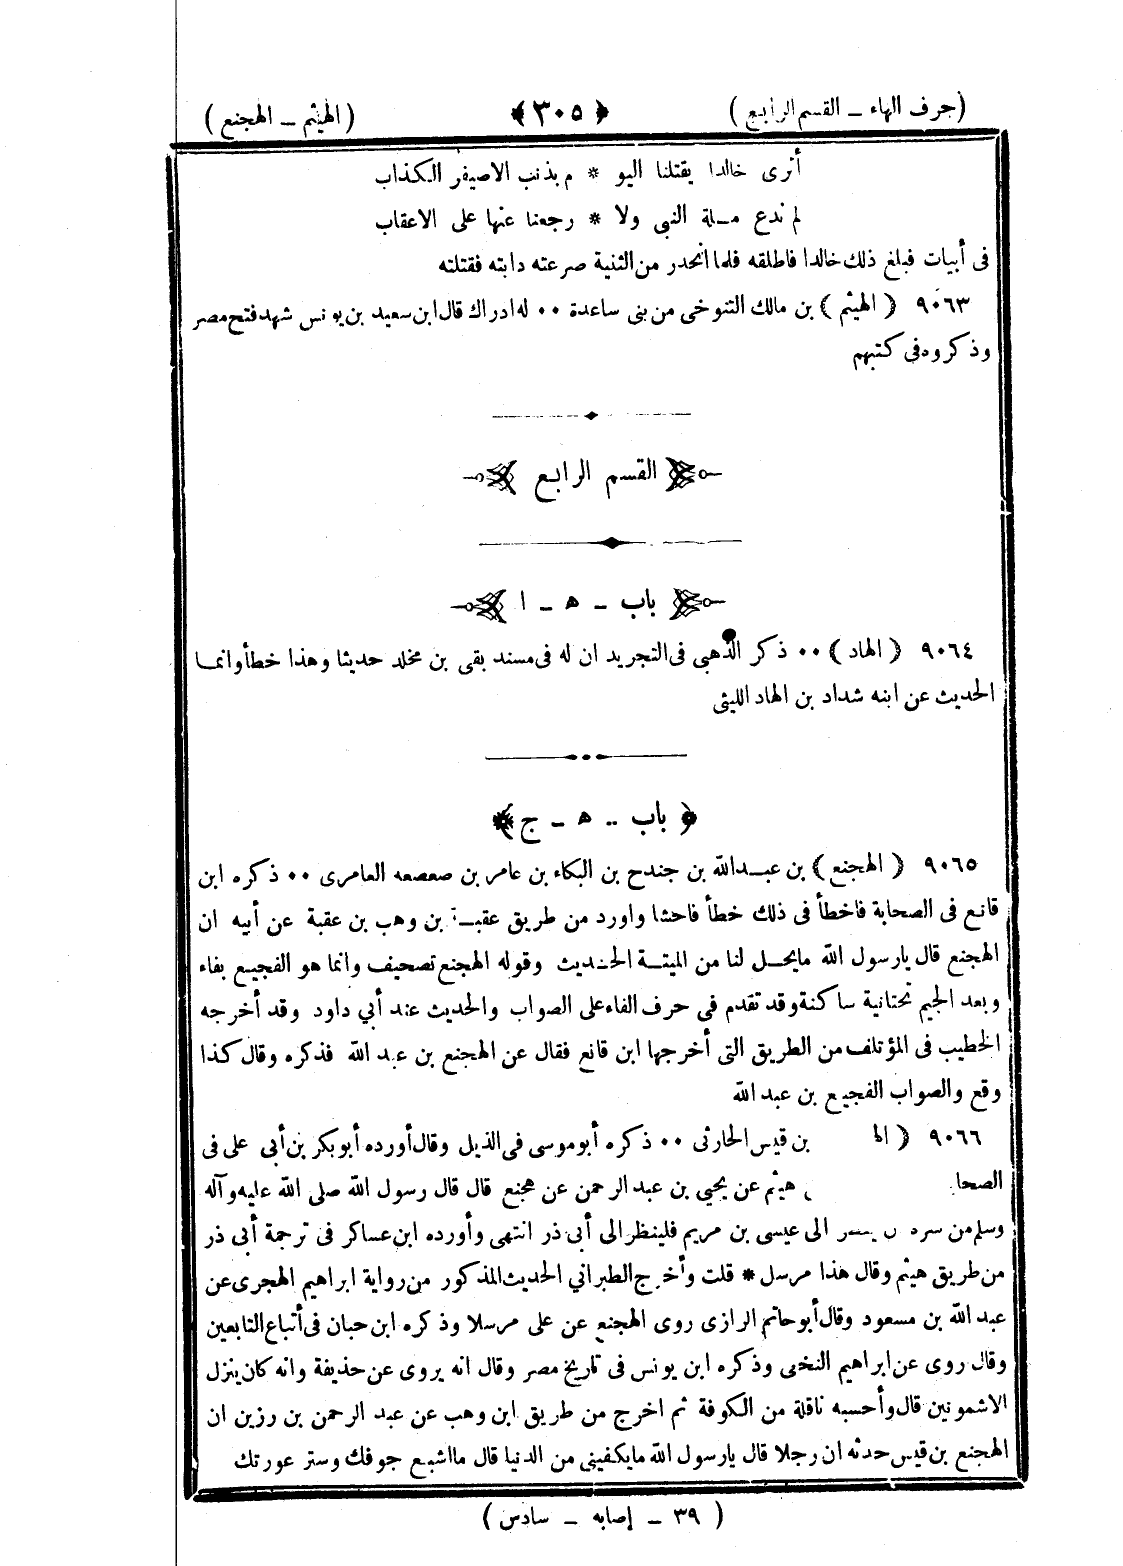 (حرف الهاء – القسم الرابع) ﴿٣٠٥﴾ (الهيثم – الهجنع)
أترى خالدا يقتلنا اليو * م بذنب الاصيفر الكذاب
لم ندع مـلة النبي ولا * رجعنا عنها على الاعقاب
فى أبيات فبلغ ذلك خالدا فاطلقه فلما انحدر من الثنية صرعته دابته فقتلته
٩٠٦٣ ﴿ الهيثم ﴾ بن مالك التنوخى من بنى ساعدة ٠٠ له ادراك قال ابن سعيد بن يونس شهد فتح مصر
وذكروه فى كتبهم
القسم الرابع
باب – هـ – ا
٩٠٦٤ ﴿ الهاد ﴾ ٠٠ ذكر الذهبي فى التجريد ان له فى مسند بقى بن مخلد حديثا وهذا خطأ وانمـا
الحديث عن ابنه شداد بن الهاد الليثى
﴿ باب – هـ – ج ﴾
٩٠٦٥ ﴿ الهجنع ﴾ بن عبـدالله بن جندح بن البكاء بن عامر بن صعصعه العامرى ٠٠ ذكره ابن
قانع فى الصحابة فاخطأ فى ذلك خطأ فاحشا واورد من طريق عقبـة بن وهب بن عقبة عن أبيه ان
الهجنع قال يارسول الله مايحـل لنا من الميتـة الحـديث وقوله الهجنع تصحيف وانما هو الفجيع بفاء
وبعد الجيم تحتانية ساكنة وقد تقدم فى حرف الفاء على الصواب والحديث عند أبي داود وقد أخرجه
الخطيب فى المؤتلف من الطريق التى أخرجها ابن قانع فقال عن الهجنع بن عبد الله فذكره وقال كذا
وقع والصواب الفجيع بن عبد الله
٩٠٦٦ ﴿ اله بن قيس الحارثى ٠٠ ذكره أبوموسى فى الذيل وقال أورده أبوبكر بن أبى على فى
الصحا هيثم عن يحيى بن عبد الرحمن عن هجنع قال قال رسول الله صلى الله عليه وآله
وسلم من سره الى عيسى بن مريم فلينظر الى أبى ذر انتهى وأورده ابن عساكر فى ترجمة أبى ذر
من طريق هيثم وقال هذا مرسل * قلت وأخرج الطبراني الحديث المذكور من رواية ابراهيم الهجرى عن
عبد الله بن مسعود وقال أبوحاتم الرازى روى الهجنع عن على مرسلا وذكره ابن حبان فى أتباع التابعين
وقال روى عن ابراهيم النخعى وذكره ابن يونس فى تاريخ مصر وقال انه يروى عن حذيفة وانه كان ينزل
الاشمونين قال وأحسبه ناقلة من الكوفة ثم اخرج من طريق ابن وهب عن عبد الرحمن بن رزين ان
الهجنع بن قيس حدثه ان رجلا قال يارسول الله مايكفينى من الدنيا قال مااشبع جوفك وستر عورتك
( ٣٩ – إصابه – سادس )